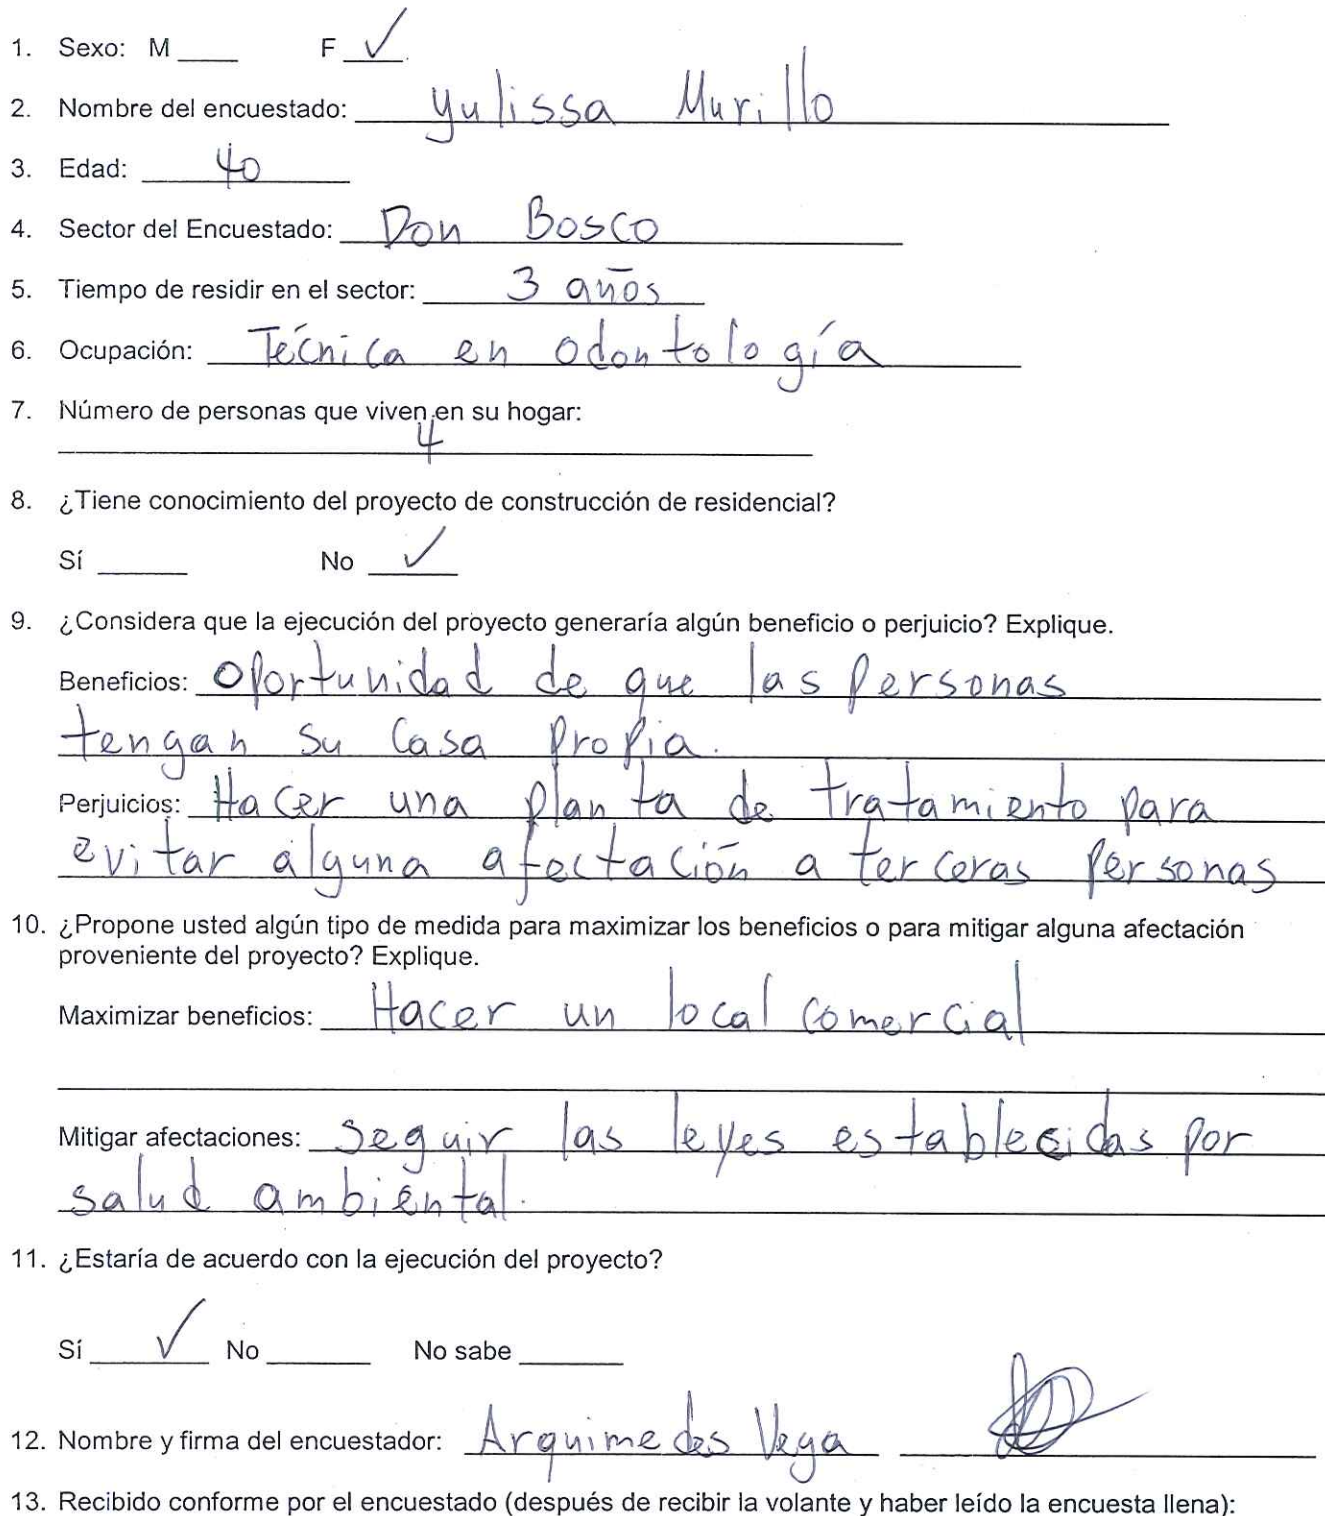 1. Sexo: M ____ F ✓
2. Nombre del encuestado: Yulissa Murillo
3. Edad: 40
4. Sector del Encuestado: Don Bosco
5. Tiempo de residir en el sector: 3 años
6. Ocupación: Técnica en odontología
7. Número de personas que viven en su hogar:
4
8. ¿Tiene conocimiento del proyecto de construcción de residencial?
Sí ____ No ✓
9. ¿Considera que la ejecución del proyecto generaría algún beneficio o perjuicio? Explique.
Beneficios: Oportunidad de que las personas
tengan su casa propia.
Perjuicios: Hacer una planta de tratamiento para
evitar alguna afectación a terceras personas
10. ¿Propone usted algún tipo de medida para maximizar los beneficios o para mitigar alguna afectación
proveniente del proyecto? Explique.
Maximizar beneficios: Hacer un local comercial
Mitigar afectaciones: Seguir las leyes establecidas por
salud ambiental.
11. ¿Estaría de acuerdo con la ejecución del proyecto?
Sí ✓ No ____ No sabe ____
12. Nombre y firma del encuestador: Arquimedes Vega
13. Recibido conforme por el encuestado (después de recibir la volante y haber leído la encuesta llena):